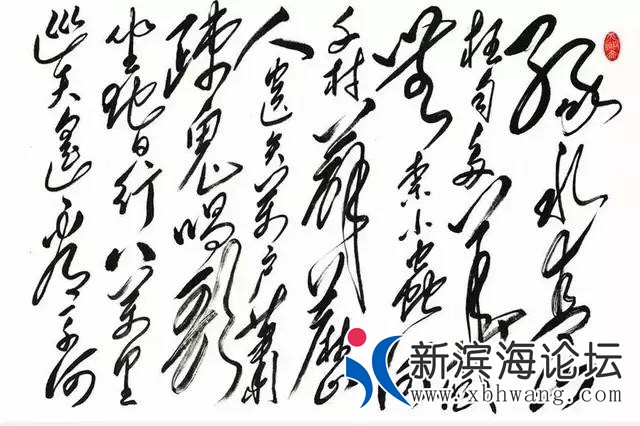 绿水青山
枉自多华佗
無奈小蟲何
千村薜藶
人遗矢萬户蕭
疎鬼唱歌
坐地日行八萬里
巡天遥看一千河
新滨海论坛
www.xbhwang.com